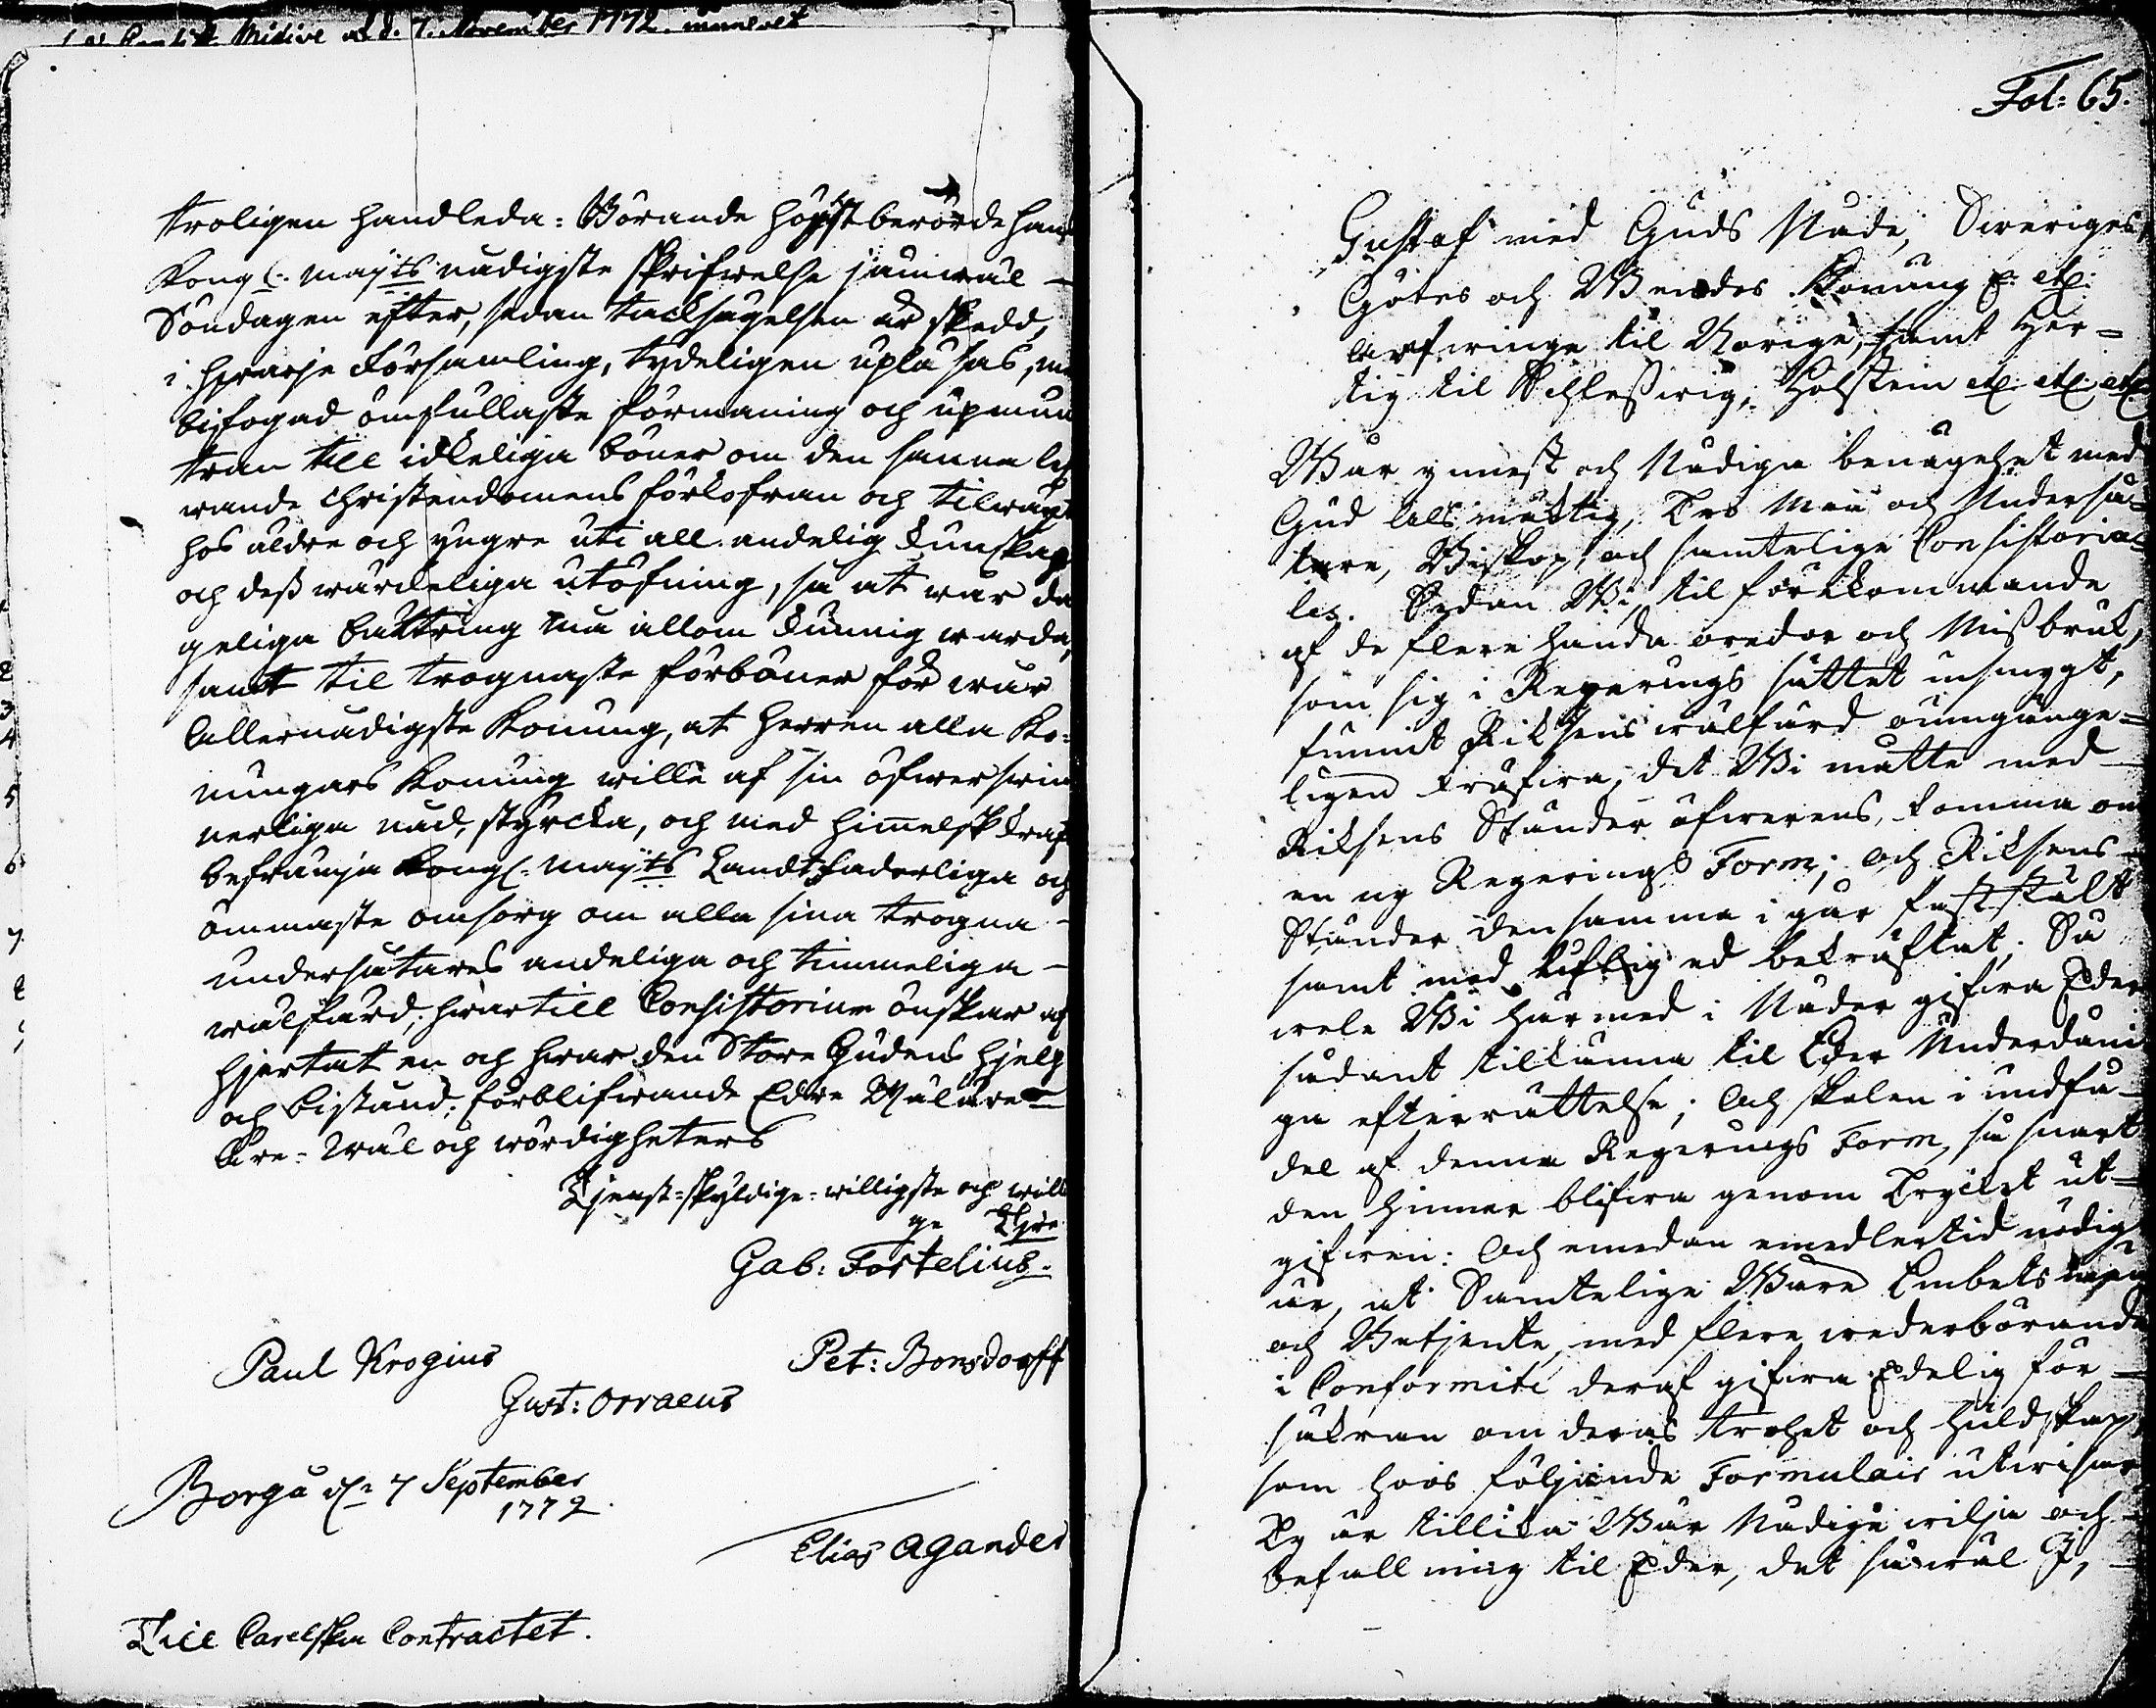 af d. 7. November 1772.
troligen handleda: Börande högstberörde hans
Kongl. Maÿts nådigste skrifwelse jämwäl
Söndagen efter, sedan tacksägelsen är skedd,
i hwarje Församling, tydeligen upläsas, me
bifogad ömsullaste förmaning och upmun
tran till idkeliga böner om den sanna lef
wande Christendomens förkofran och tilwäxt
hos äldre och yngre uti all andelig kunskap
och dess wärdeliga utöfning, så at wår da
geliga bättring må allom kunnig warda,
samt til trognaste förböner för wår
Allernådigste Konung, at Herren alla Ko-
nungars Konung wille af sin öfwerswin
nerliga nåd, styrcka, och med himmelsk kraft
befrämja Kongl. Maÿts Landtfaderliga och
ömmaste omsorg om alla sina trogna
undersåtares andeliga och timmeliga
wälfärd; hwartill Consistorium önskar af
hjertat en och hwar den Store Gudens hjelp
och bistånd; förblifwande Edre Wäläre-
Äre- Wäl och wördigheters
Tjenst-skyldige-willigste och willi
ge Tjre
Gab: Fortelius.
Paul Krogius
Pet: Bonsdorff
Gust: Orraeus
Borgå d. 7 September
1772.
Elias Agander
Till Carelska Contractet.
Fol: 65.
Gustaf med Guds Nåde, Sweriges,
Götes och Wendes Konung &. etc.
Arfwinge til Norige, samt Her-
tig til Schleswig, Holstein etc. etc. etc.
Wår ynnest och Nådiga benägehet med
Gud Alsmäktig, Tro Män och Underså-
tare, Biskop, och samtelige Consistoria-
les. Sedan Wi, til förekommande
af de flere handa oredor och Missbruk,
som sig i Regerings sättet insmygt,
funnit Riksens wälfärd oumgänge-
ligen kräfwa, det Wi måtte med
Riksens Ständer öfwerens, komma om
en ny Regerings Form; och Riksens
Ständer densamma i går faststält
samt med liflig ed bekräftat; Så
wele Wi härmed i Nåder gifwa Eder
sådant tillkänna til Eder Underdåni-
ga efterrättelse; Och skolen i undfå
del af denna Regerings Form, så snart
den hinner blifwa genom Trycket ut-
gifwen: Och emedan emedlertid nödigt
är, at Samtelige Wåre Embetsmän
och Betjente, med flere wederbörande
i Conformité deraf gifwa Edelig för-
säkran om deras trohet och huldskap,
som hoos följande Formulair utwisar
Ty är tillika Wår Nådige wilja och
befallning til Eder, det såwäl I,